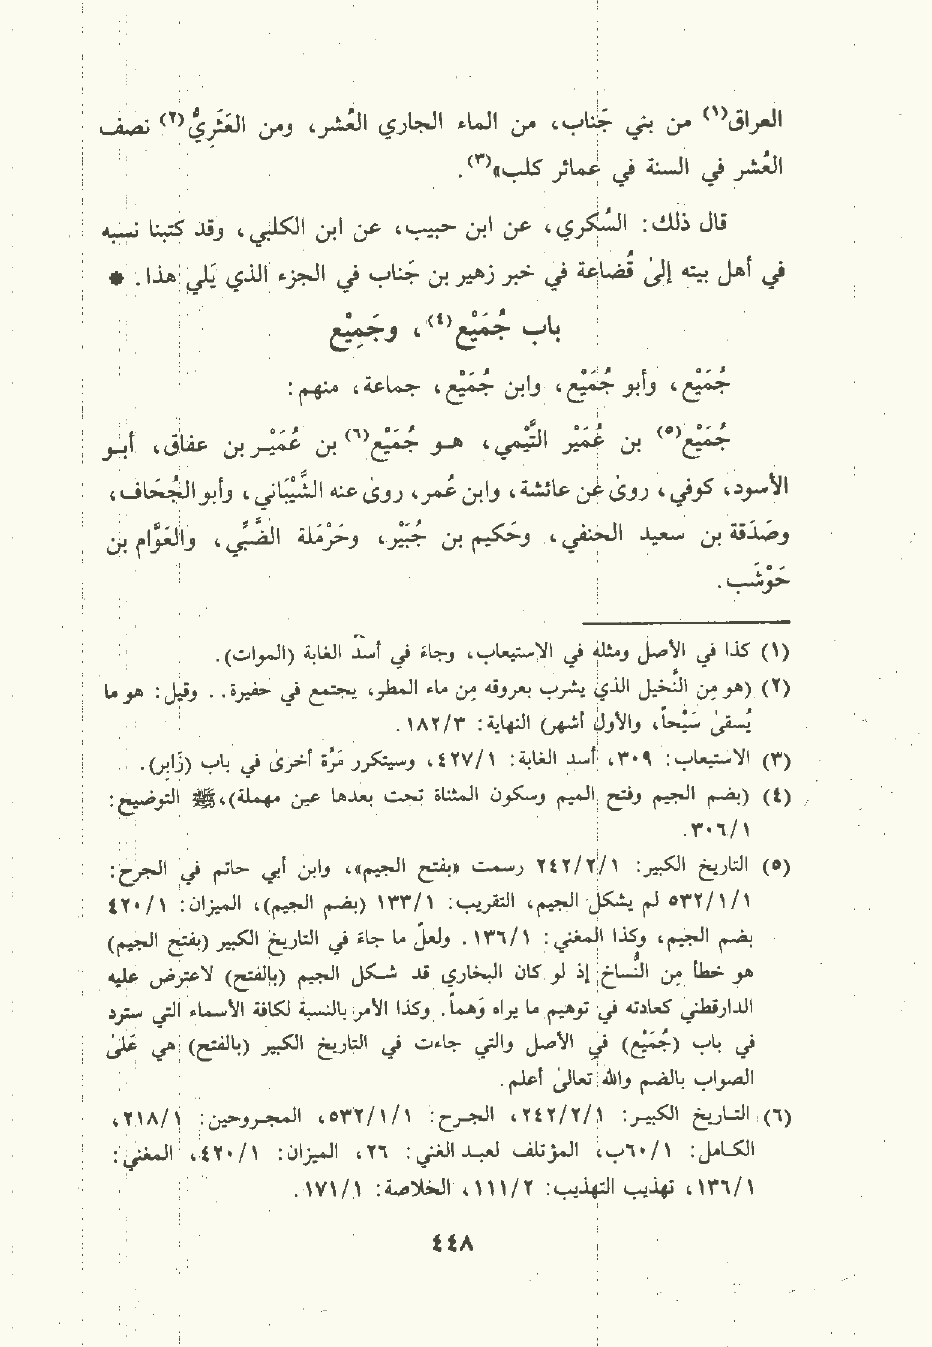 العراق(١) من بني جَناب، من الماء الجاري العُشر، ومن العَثَرِيُّ(٢) نصف
العُشر في السنة في عمائر كلب»(٣).
قال ذلك: السُكري، عن ابن حبيب، عن ابن الكلبي، وقد كتبنا نسبه
في أهل بيته إلىٰ قُضاعة في خبر زهير بن جَناب في الجزء الذي يَلي هذا. *
باب جُمَيْع(٤)، وجَمِيْع
جُمَيْع، وأبو جُمَيْع، وابن جُمَيْع، جماعة، منهم:
جُمَيْع(٥) بن عُمَيْر التَّيْمي، هـو جُمَيْع(٦) بن عُمَيْـر بن عفاق، أبـو
الأسود، كوفي، روىٰ عن عائشة، وابن عُمر، روىٰ عنه الشَّيْبَاني، وأبو الجُحَاف،
وصَدَقة بن سعيد الحنفي، وحَكيم بن جُبَيْر، وحَرْمَلة الضَّبِّي، والعَوَّام بن
حَوْشَب.
(١) كذا في الأصل ومثله في الاستيعاب، وجاءَ في أسدّ الغابة (الموات).
(٢) (هو مِن النَّخيل الذي يشرب بعروقه مِن ماء المطر، يجتمع في حفيرة.. وقيل: هو ما
يُسقىٰ سَيْحاً، والأول أشهر) النهاية: ١٨٢/٣.
(٣) الاستيعاب: ٣٠٩، أسد الغابة: ٤٢٧/١، وسيتكرر مَرَّة أخرىٰ في باب (زَابِر).
(٤) (بضم الجيم وفتح الميم وسكون المثناة تحت بعدها عين مهملة)، ﷺ التوضيح:
٣٠٦/١.
(٥) التاريخ الكبير: ٢٤٢/٢/١ رسمت «بفتح الجيم»، وابن أبي حاتم في الجرح:
٥٣٢/١/١ لم يشكل الجيم، التقريب: ١٣٣/١ (بضم الجيم)، الميزان: ٤٢٠/١
بضم الجيم، وكذا المغني: ١٣٦/١. ولعلّ ما جاءَ في التاريخ الكبير (بفتح الجيم)
هو خطأ مِن النُّساخ إذ لو كان البخاري قد شـكل الجيم (بالفتح) لاعترض عليه
الدارقطني كعادته في توهيم ما يراه وَهماً. وكذا الأمر بالنسبة لكافة الأسماء التي سترد
في باب (جُمَيْع) في الأصل والتي جاءت في التاريخ الكبير (بالفتح) هي عَلىٰ
الصواب بالضم والله تعالىٰ أعلم.
(٦) التـاريخ الكبيـر: ٢٤٢/٢/١، الجـرح: ٥٣٢/١/١، المجـروحين: ٢١٨/١،
الكـامل: ٦٠/١ب، المؤتلف لعبـد الغني: ٢٦، الميزان: ٤٢٠/١، المغني:
١٣٦/١، تهذيب التهذيب: ١١١/٢، الخلاصة: ١٧١/١.
٤٤٨